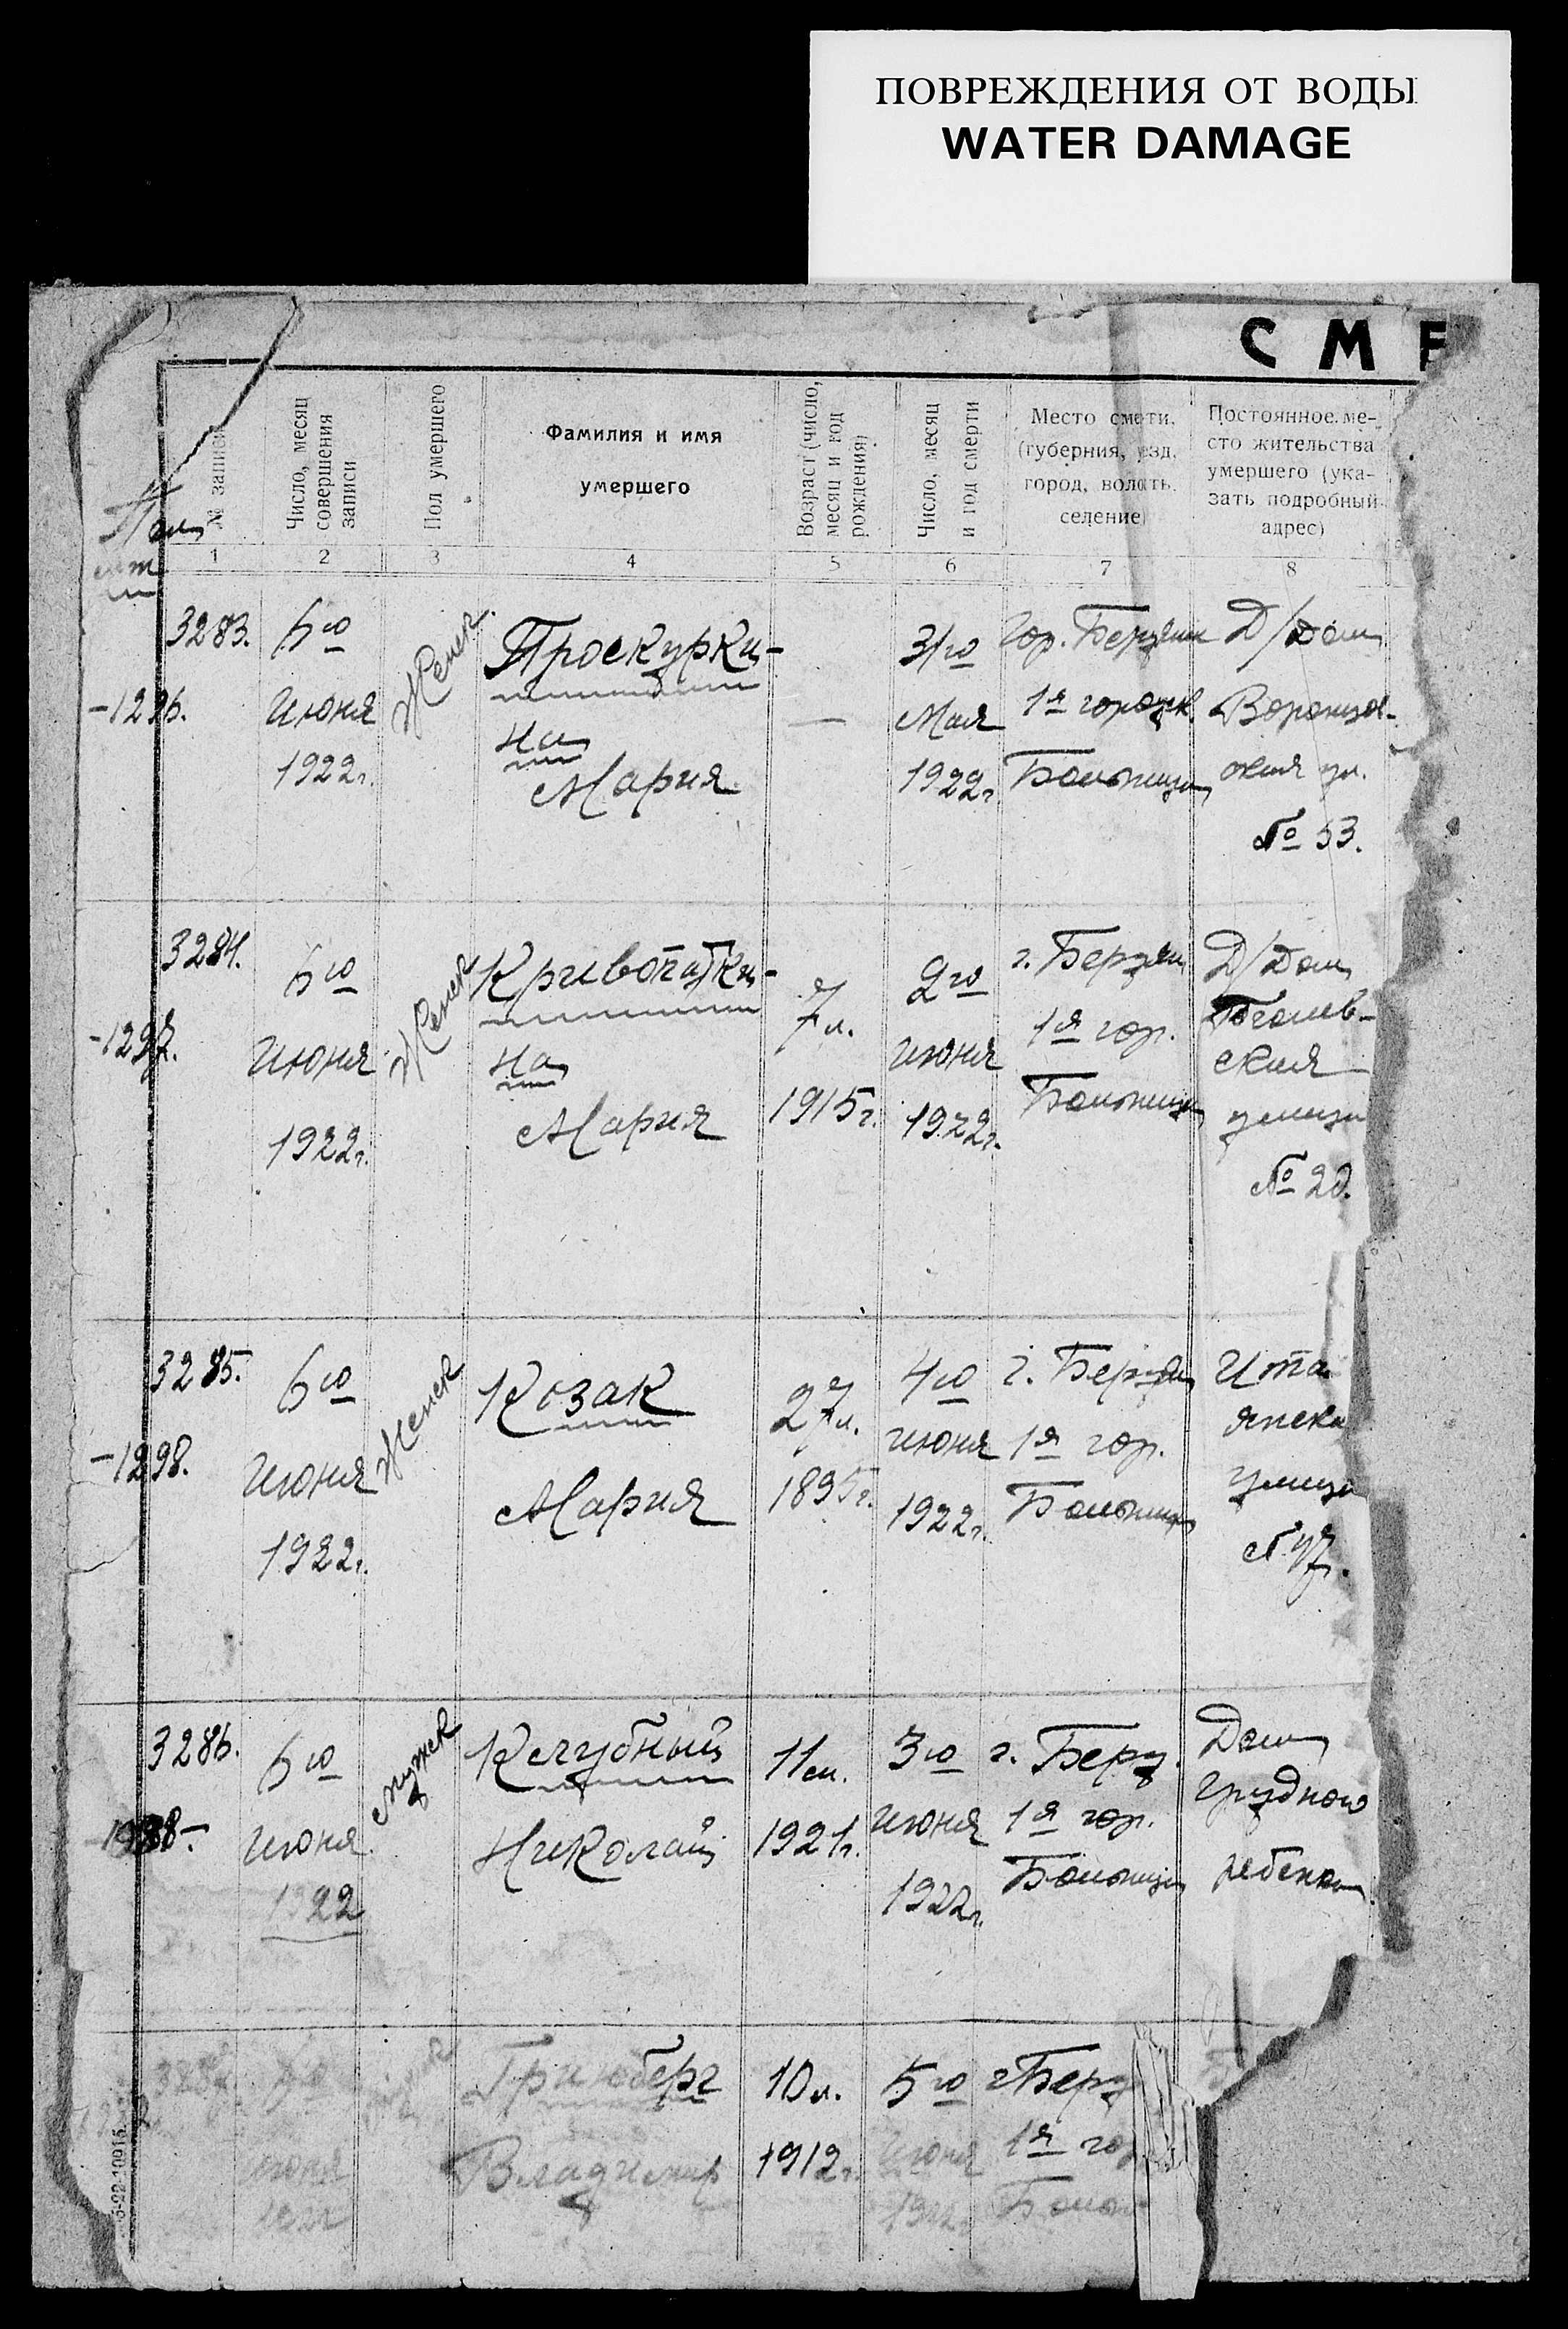 ПОВРЕЖДЕНИЯ ОТ ВОДЫ
WATER DAMAGE
СМЕ
№ записи
Число, месяц
совершения
записи
Пол умершего
Фамилия и имя
умершего
Возраст (число,
месяц и год
рождения)
Число, месяц
и год смерти
Место смоти,
(губерния, уезд,
город, волость,
селение)
Постоянное ме-
сто жительства
умершего (ука-
зать подробный
адрес)
1 2 3 4 5 6 7 8
3283.
-1296.
6го
Июня
1922г.
Женск.
Проскурки-
на
Мария
—
31го
Мая
1922г
Гор. Бердянск
1я городск.
Больница
Д/Дом
Воронцов-
ская ул.
№ 53.
3284.
-1297.
6го
Июня
1922г.
Женск
Кривопатки-
на
Мария
7л.
1915г.
2го
июня
1922г.
г. Бердян
1я гор.
Больница
Д/Дом
ская
улица
№ 20.
3285.
-1298.
6го
Июня
1922г.
Женск
Козак
Мария
27л.
1895г.
4го
июня
1922г.
г. Бердян
1я гор.
Больница
Ита
янска
улица
№ 47.
3286.
6го
Июня
1922
мужск
Клубный
Николай
11м.
1921г.
3го
июня
1922г.
г. Берд.
1я гор.
Больница
Дом
грудного
ребенка.
3287
июня
1922
Гринберг
Владимир
10л.
1912г.
5го
Июня
1922г.
г Берд
1я го
Больн
5-22-10915.